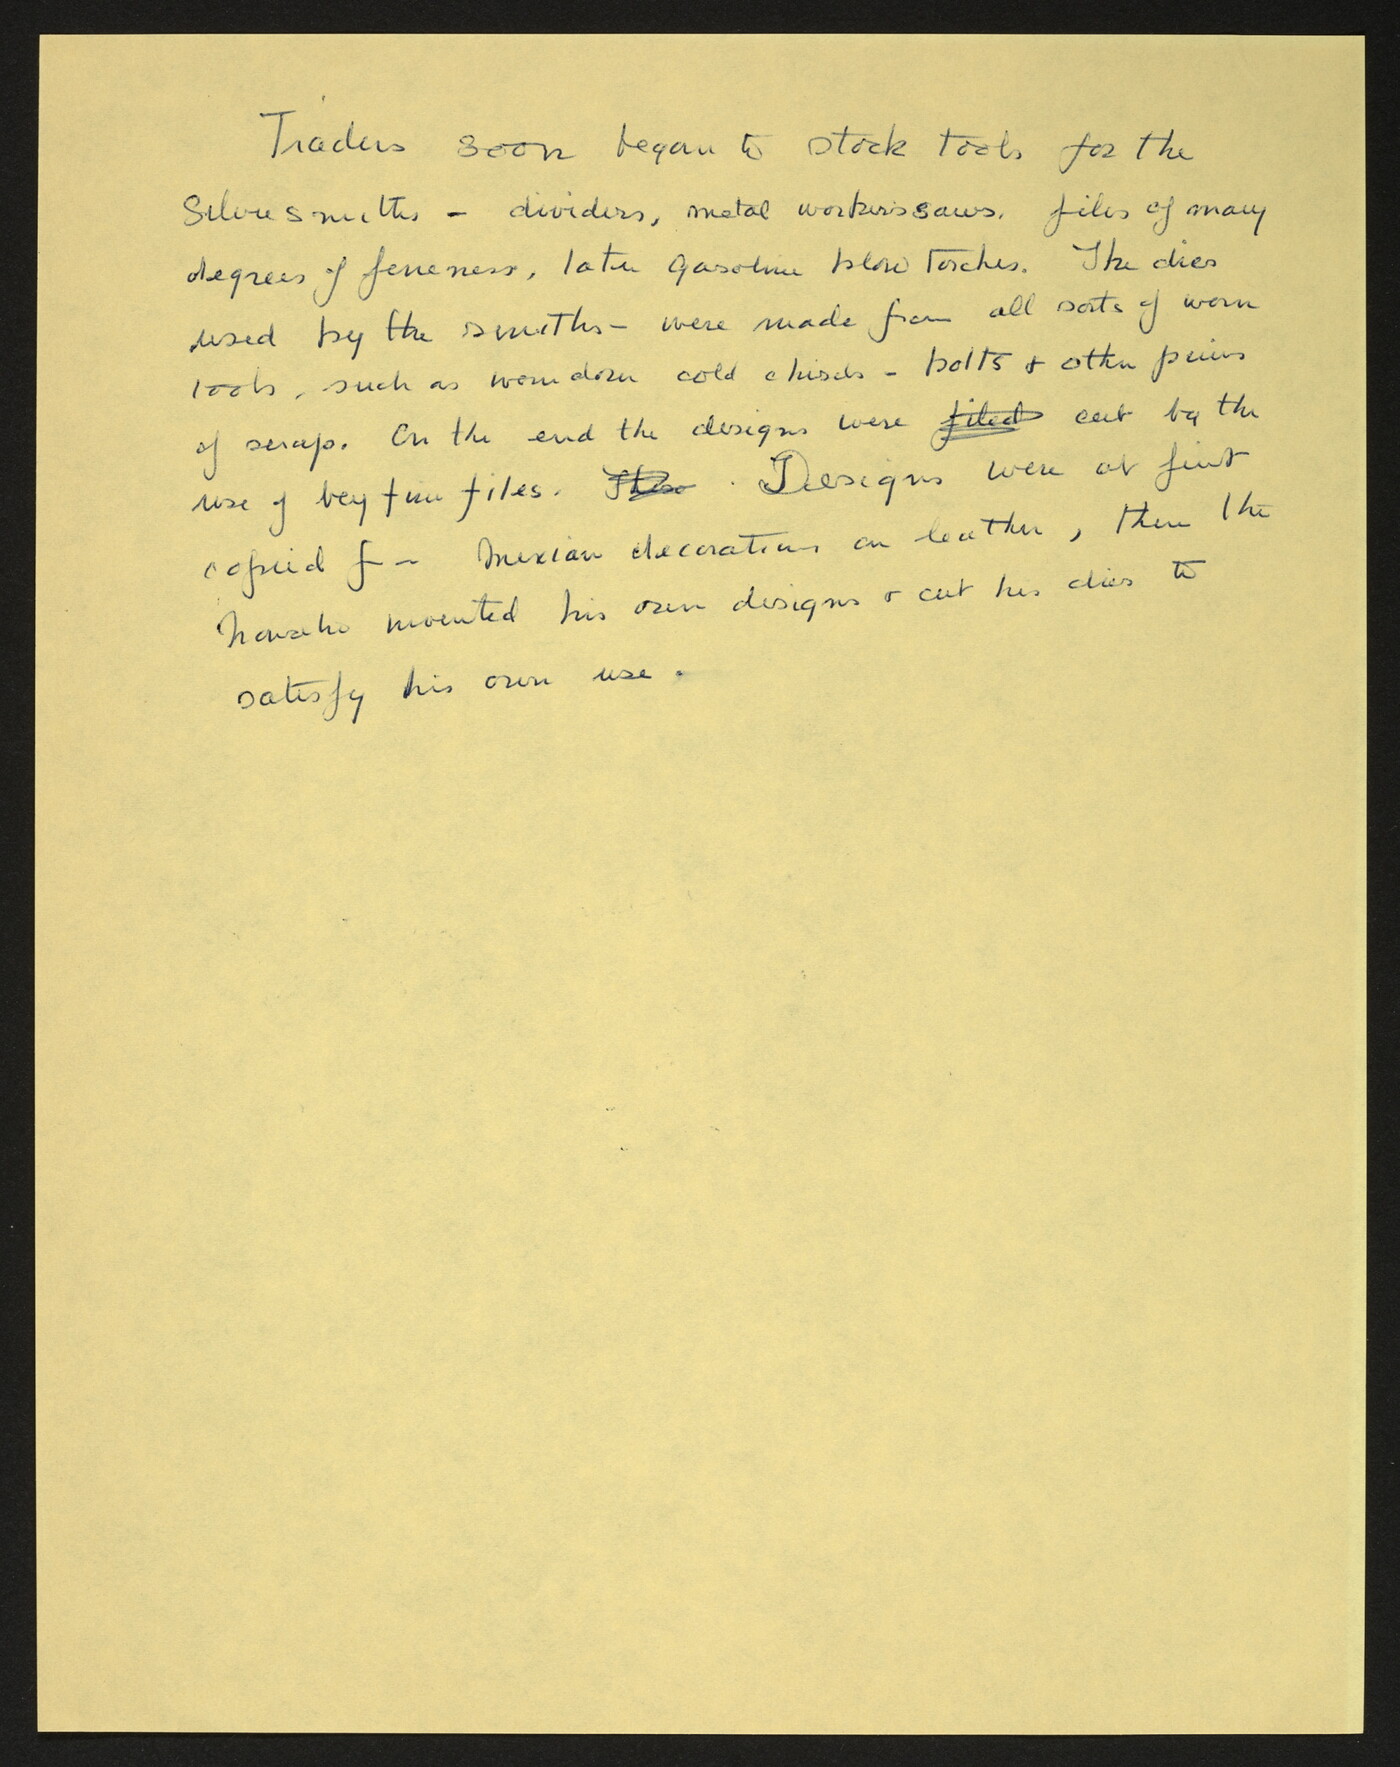 Traders soon began to stock tools for the
Silversmiths - dividers, metal workers saws, files of many
degrees of fineness, later gasoline blow torches. The dies
used by the smiths - were made from all sorts of worn
tools, such as worn down cold chisels - bolts & other pieces
of scrap. On the end the designs were filed cut by the
use of very fine files. These . Designs were at first
copied from Mexican decorations on leather, then the
Navaho invented his own designs & cut his dies to
satisfy his own use.